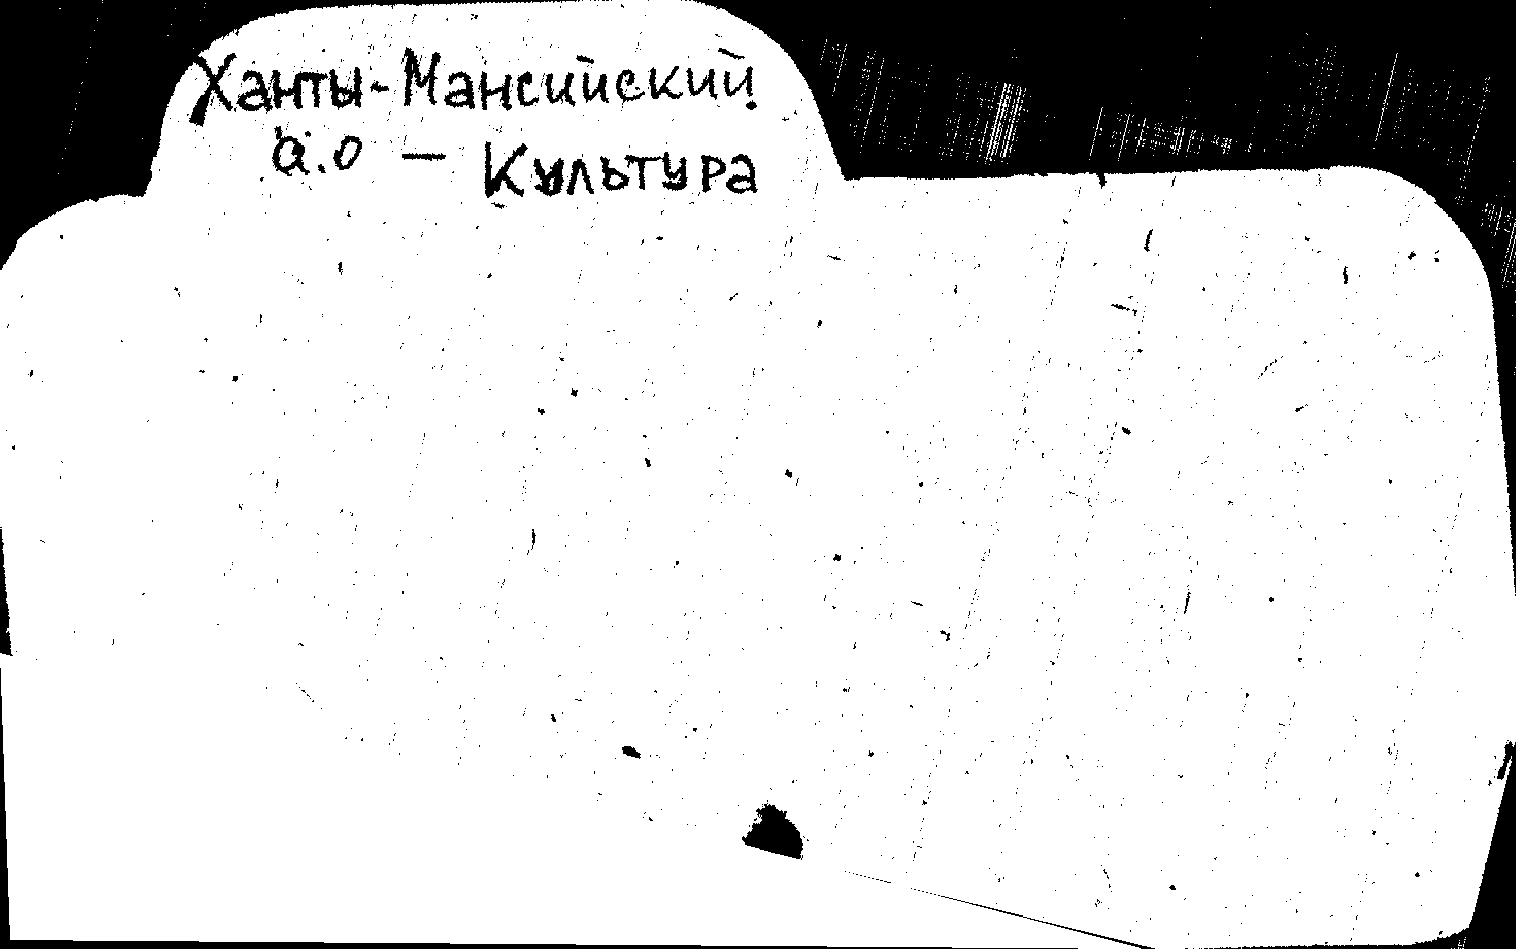 Ханты-Мансийский
а.о — Культура